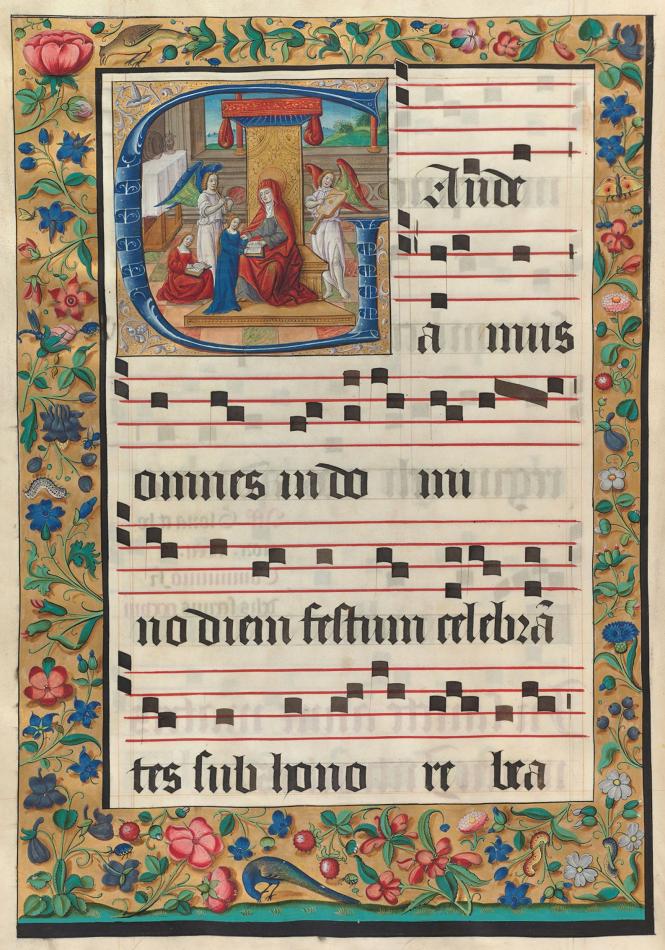 Gaude
a mus
omnes in do mi
no diem festum celebrã
tes sub hono re bea